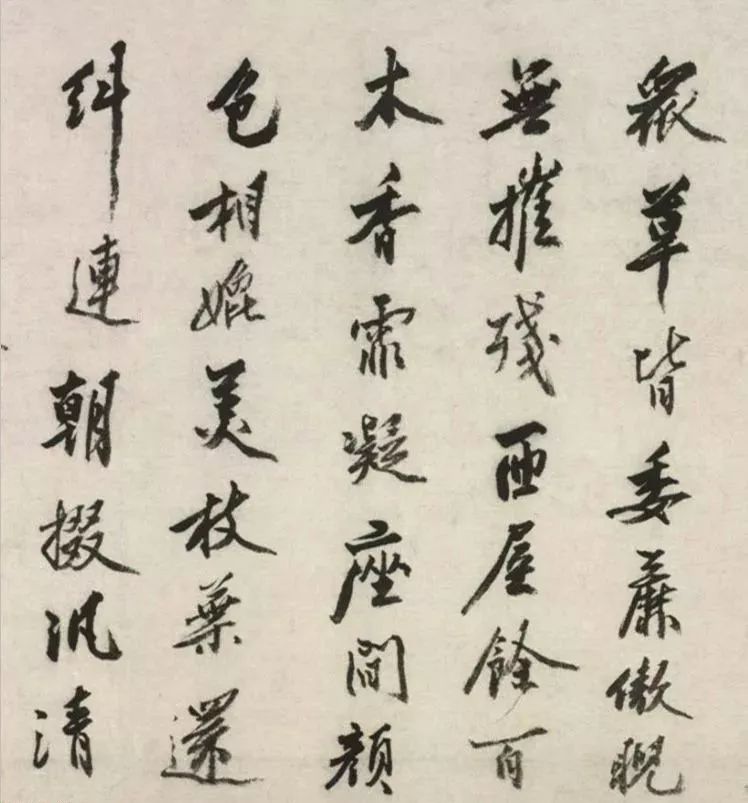 眾草皆委靡傲睨
無摧殘西屋餘百
本香霏凝座間顔
色相媲美枝葉還
糾連朝掇汎清